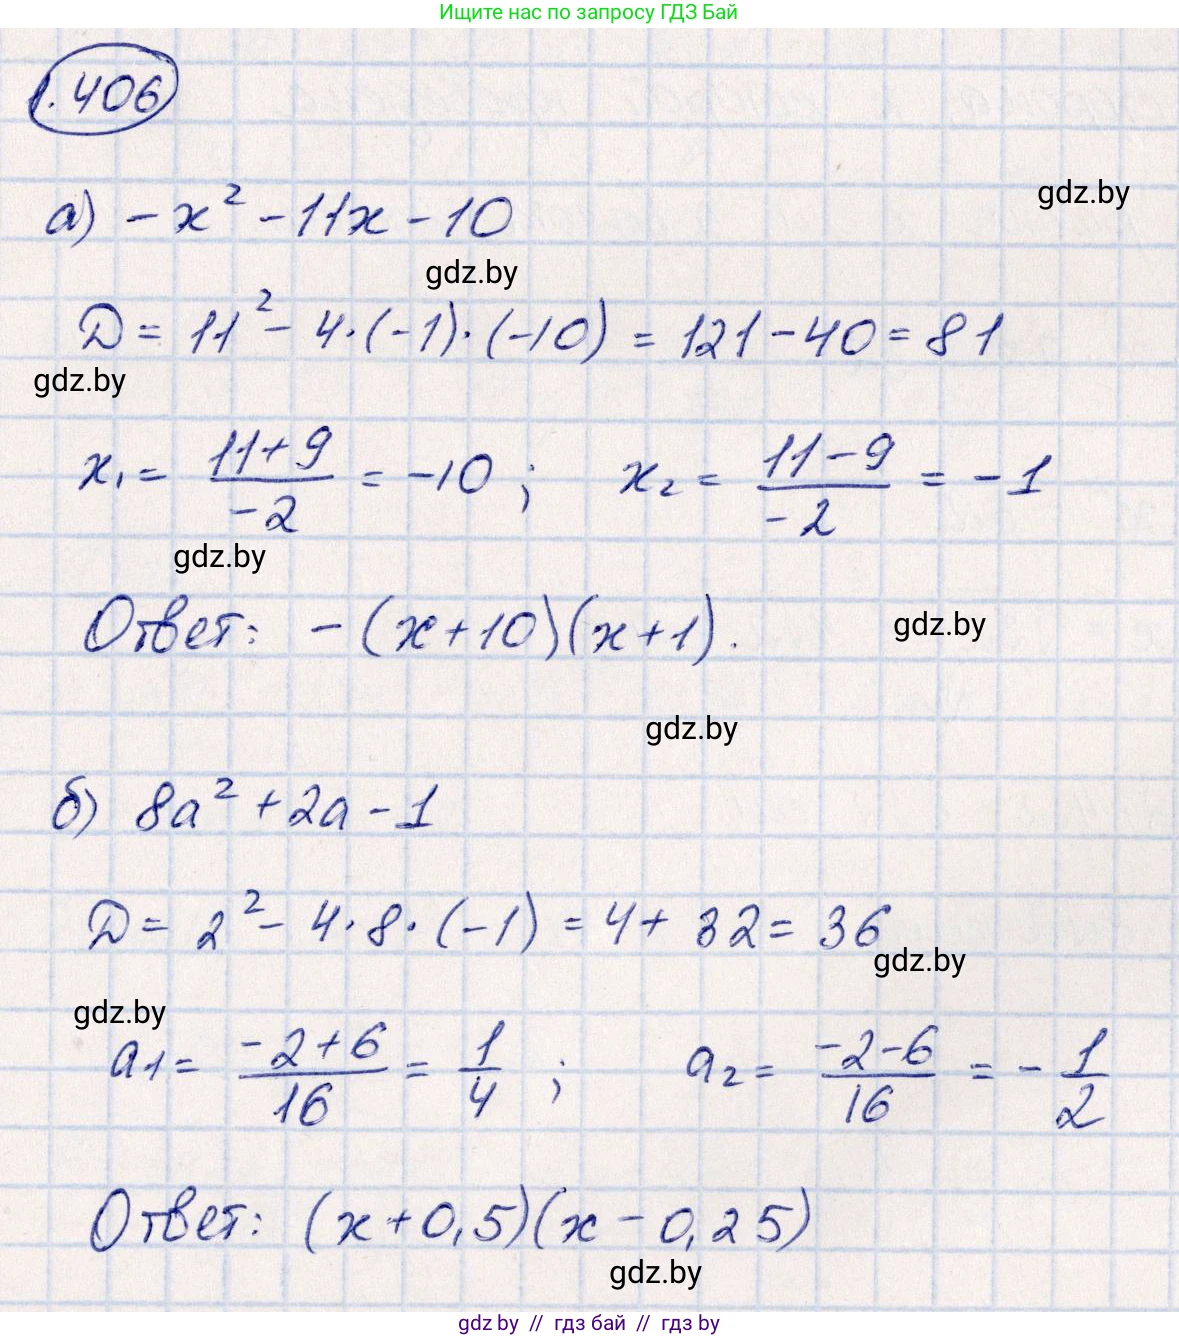 Ищите нас по запросу ГДЗ Бай
1.406
а) -x² - 11x - 10
gdz.by
gdz.by
D = 11² - 4·(-1)·(-10) = 121 - 40 = 81
gdz.by
x₁ = (11+9)/(-2) = -10 ; x₂ = (11-9)/(-2) = -1
gdz.by
Ответ: -(x+10)(x+1).
gdz.by
gdz.by
б) 8a² + 2a - 1
D = 2² - 4·8·(-1) = 4 + 32 = 36
gdz.by
gdz.by
a₁ = (-2+6)/16 = 1/4 ; a₂ = (-2-6)/16 = -1/2
Ответ: (x+0,5)(x-0,25)
gdz.by
gdz by // гдз бай // гдз by